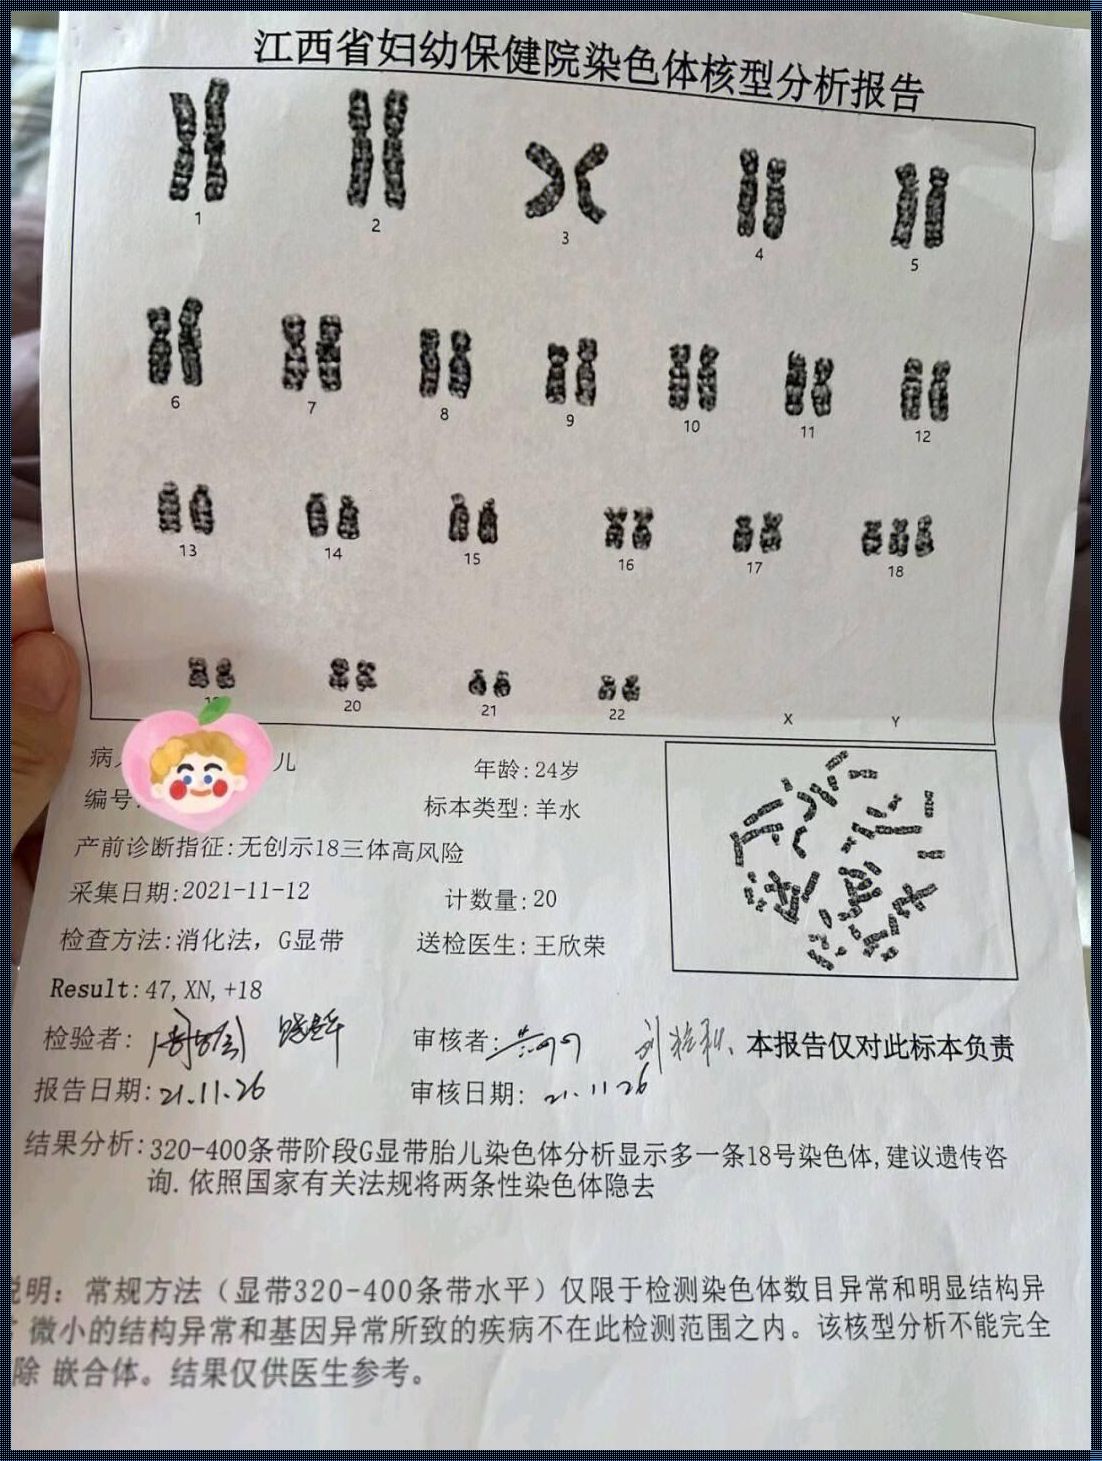 江西省妇幼保健院染色体核型分析报告
1 2 3 4 5
6 7 8 9 10 11 12
13 14 15 16 17 18
20 21 22 X Y
病 儿 年龄:24岁
编号: 标本类型:羊水
产前诊断指征:无创示18三体高风险
采集日期:2021-11-12 计数量:20
检查方法:消化法，G显带 送检医生:王欣荣
Result:47,XN,+18
检验者: 审核者: 本报告仅对此标本负责
报告日期:21.11.26 审核日期: 21.11.26
结果分析:320-400条带阶段G显带胎儿染色体分析显示多一条18号染色体,建议遗传咨
询.依照国家有关法规将两条性染色体隐去
说明：常规方法（显带320-400条带水平）仅限于检测染色体数目异常和明显结构异
微小的结构异常和基因异常所致的疾病不在此检测范围之内。该核型分析不能完全
除 嵌合体。结果仅供医生参考。